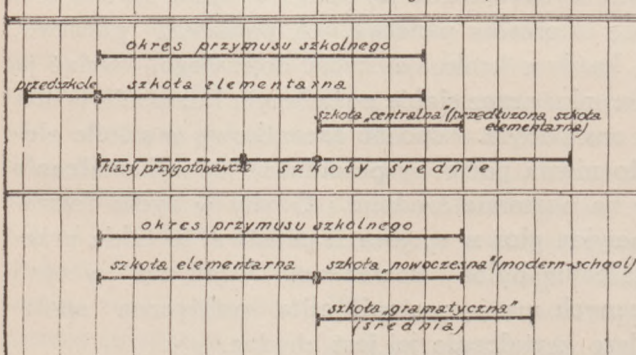 okres przymusu szkolnego
przedszkole szkoła elementarna
szkoła „centralna" (przedłużona szkoła
elementarna)
klasy przygotowawcze szkoły średnie
okres przymusu szkolnego
szkoła elementarna szkoła „nowoczesna" (modern-school)
szkoła „gramatyczna"
(średnia)